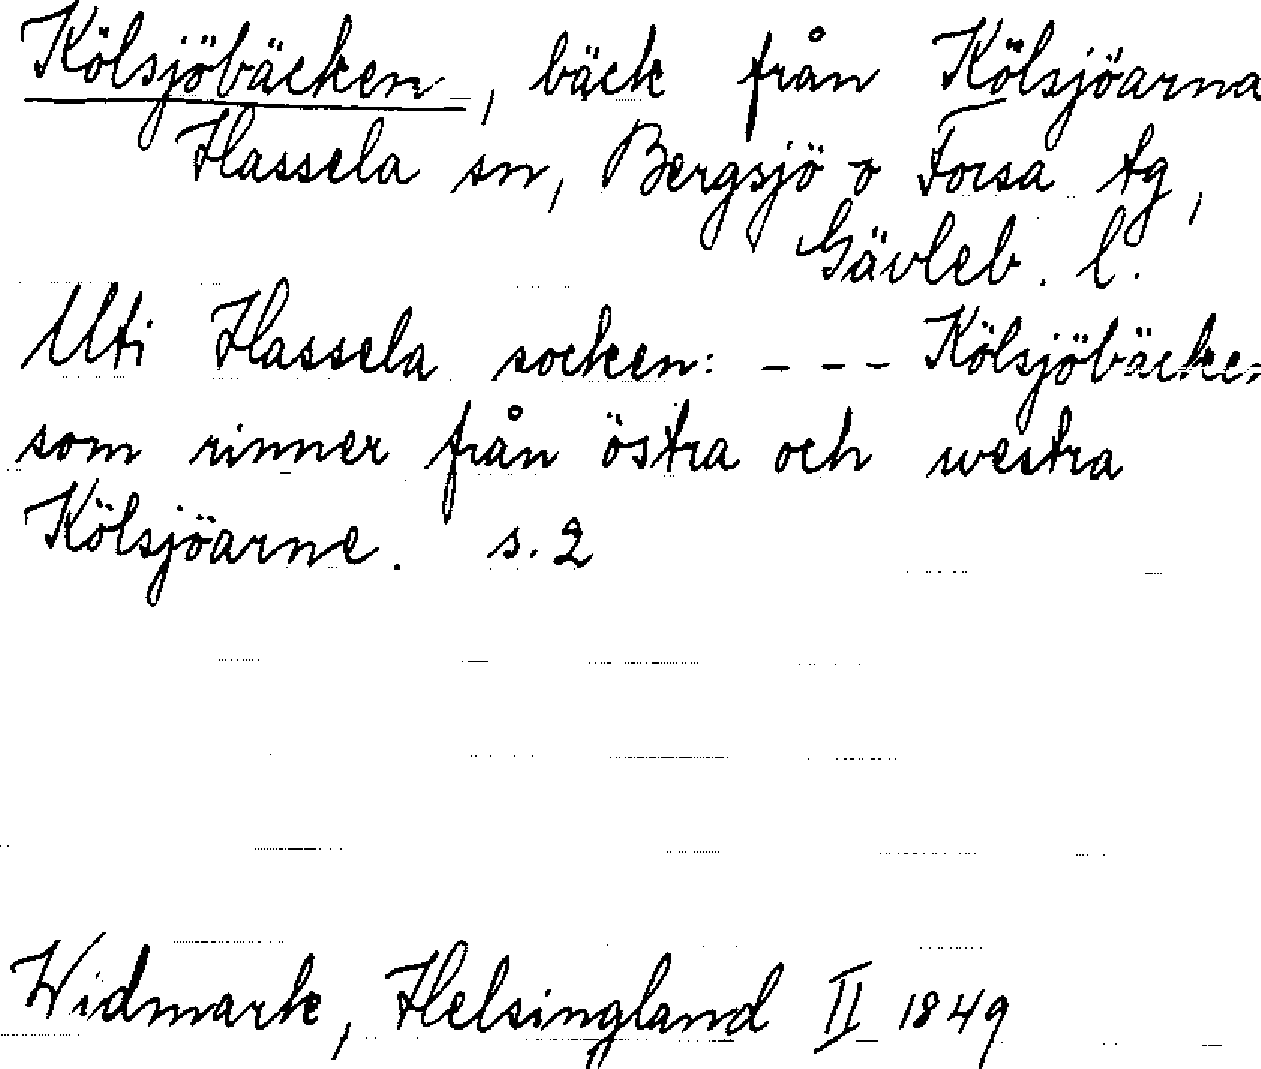 Kölsjöbäcken, bäck från Kölsjöarna
Hassela sn, Bergsjö o Forsa tg,
Gävleb. l.
Uti Hassela socken: - - - Kölsjöbäcken
som rinner från östra och westra
Kölsjöarne. s. 2
Widmark, Helsingland II 1849